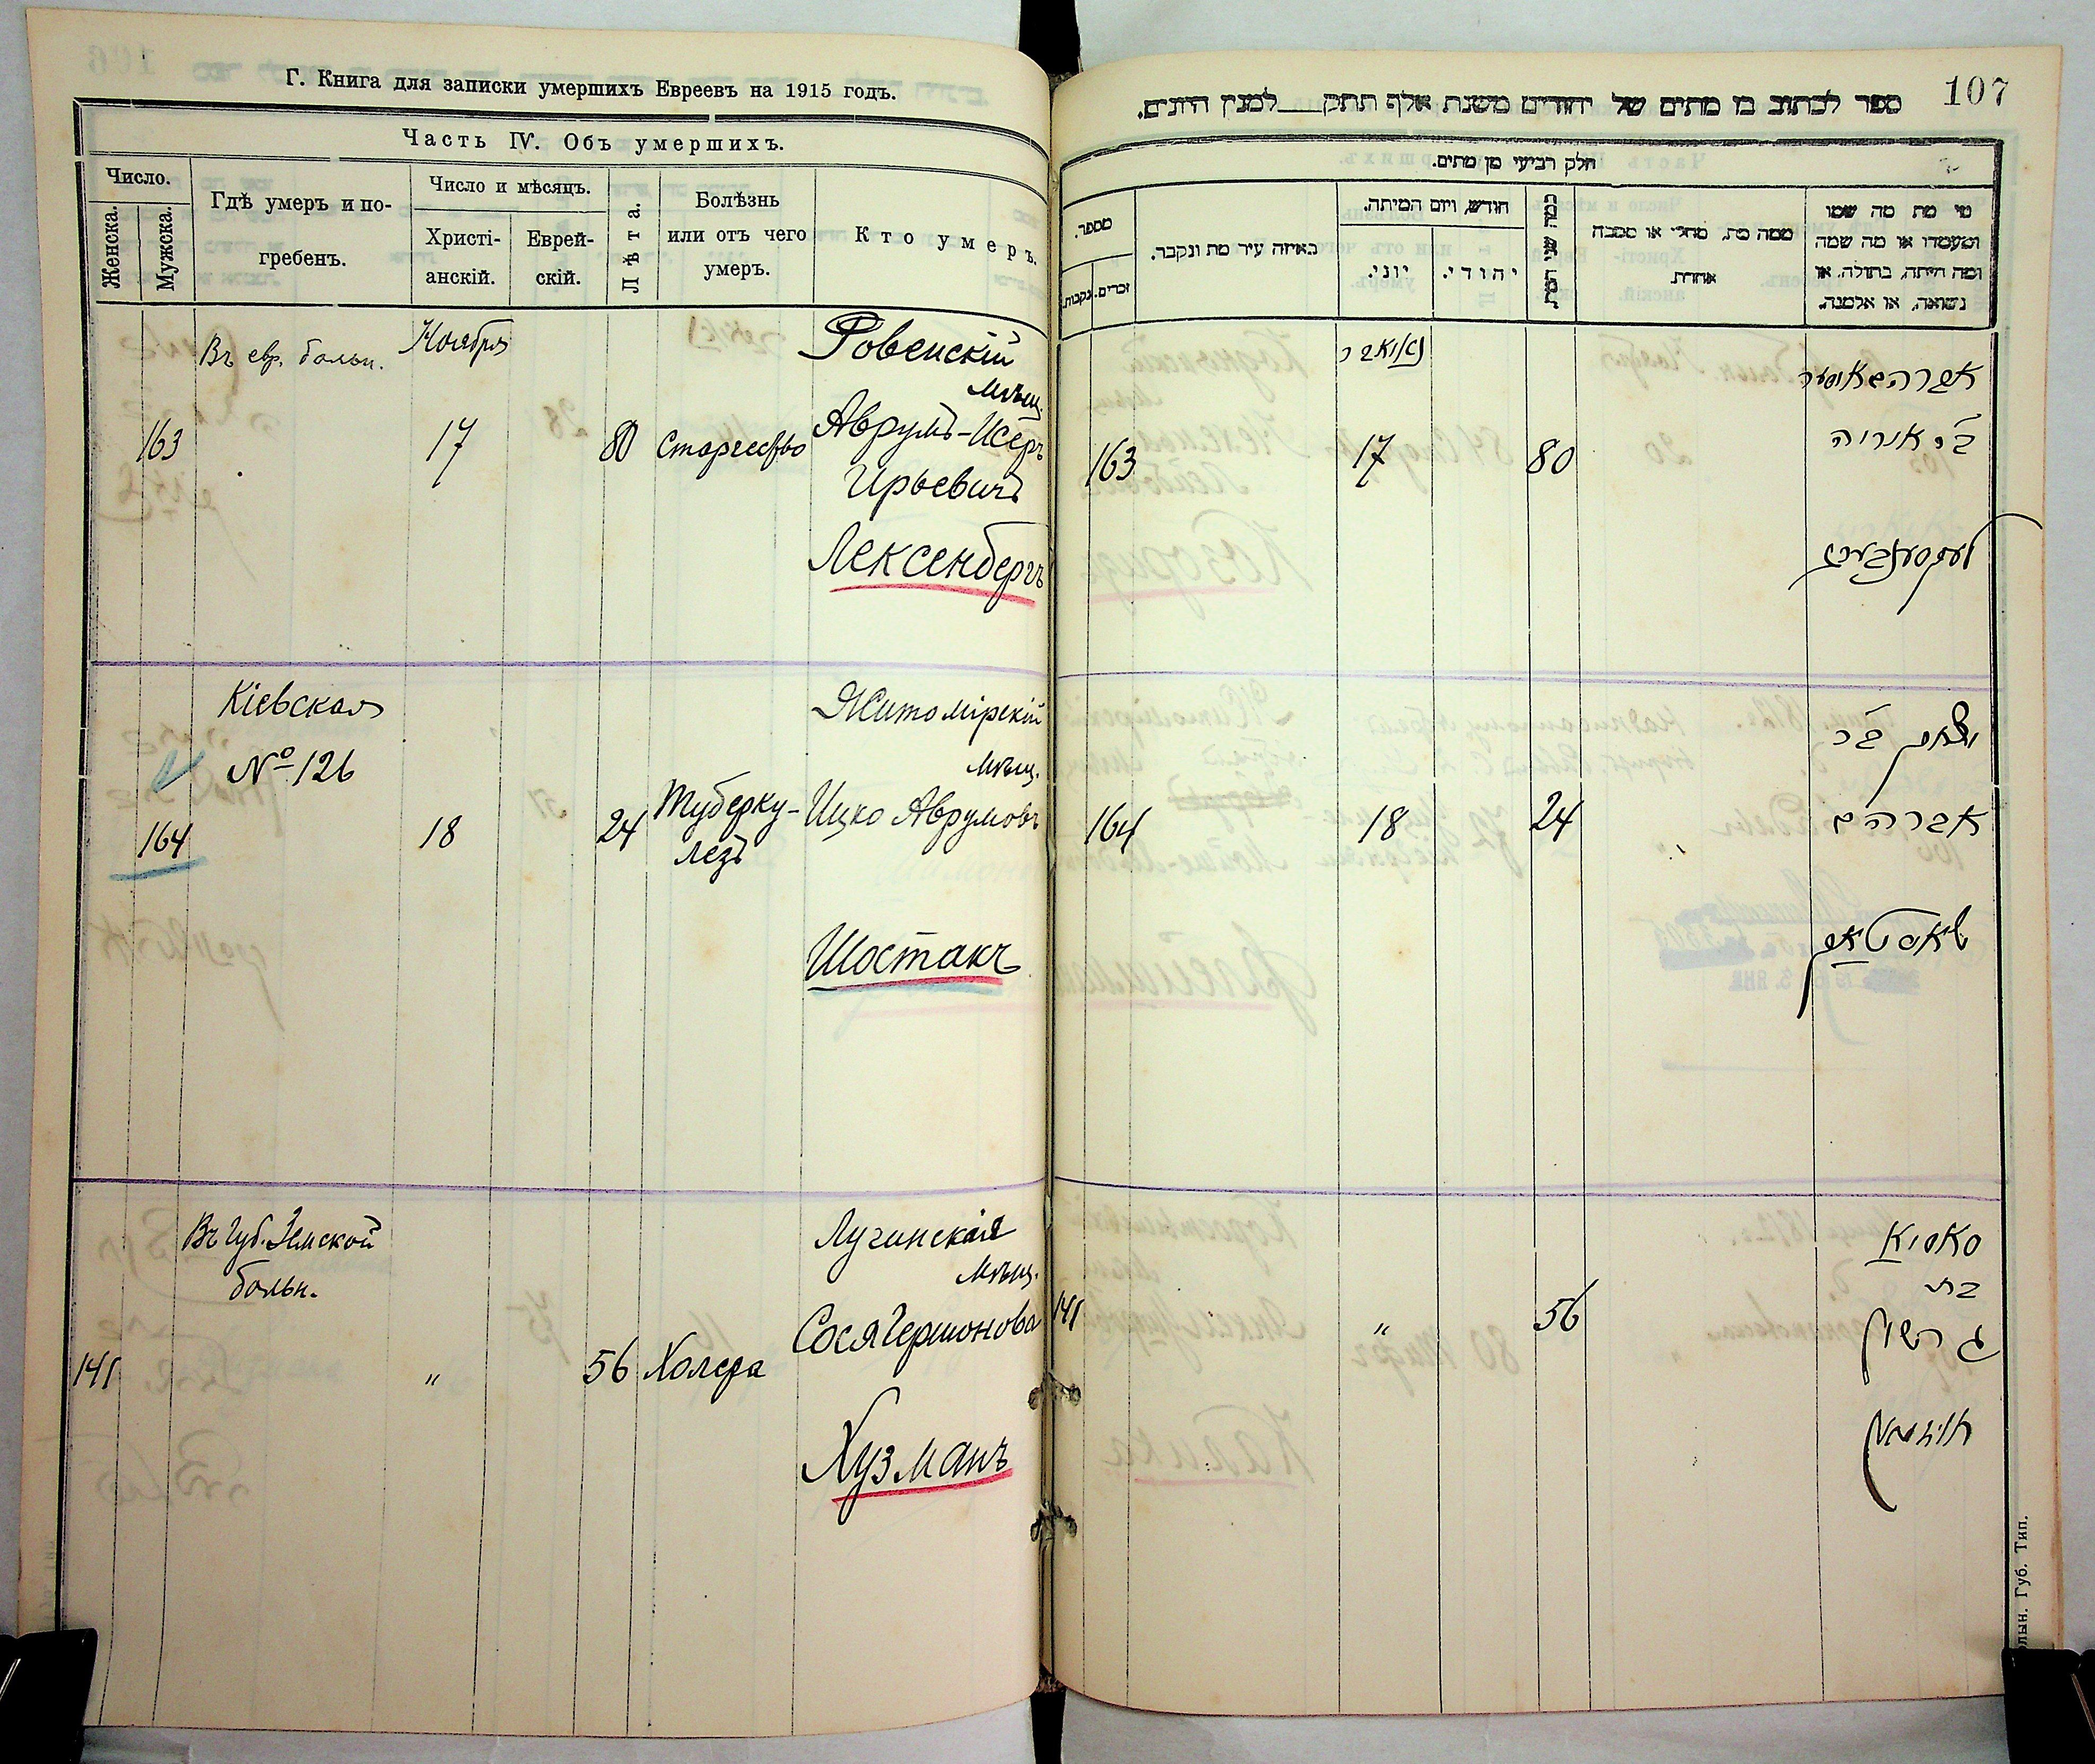 Г. Книга для записки умершихъ Евреевъ на 1915 годъ.
Часть IV. Объ умершихъ.
Число.
Женска.
Мужска.
Гдѣ умеръ и по-
гребенъ.
Число и мѣсяцъ.
Христі-
анскій.
Еврей-
скій.
Лѣта.
Болѣзнь
или отъ чего
умеръ.
Кто умеръ.
Въ евр. больн.
Ноября
Ровенскій
мѣщ.
163
17
80
Старчество
Аврумъ-Исеръ
Ирьевичъ
Лексенбергъ
Кіевская
№ 126
Житомірскій
мѣщ.
164
18
24
Туберку-
лезъ
Ицко Аврумовъ
Шостакъ
Въ Губ. Земской
больн.
Лугинская
мѣщ.
141
"
56
Холера
Сося Гершонова
Хузманъ
107
ספר לכתוב בו מתים של יהודים משנת אלף תתק___למנין היונים.
חלק רביעי מן מתים.
מספר.
זכרים.
נקבות.
באיזה עיר מת ונקבר.
חודש, ויום המיתה.
יוני.
יהודי.
כמה שני המת
ממה מת, מחלי או מסבה
אחרת.
מי מת מה שמו
ומעמדו או מה שמה
ומה היתה, בתולה, או
נשואה, או אלמנה.
נאואבר
163
17
80
אברהם איסר
בר אוריה
לעקסענבערג
164
18
24
יצחק בר
אברהם
שאסטאק
141
"
56
סאסיא
בת
גרשון
חוזמאן
олын. Губ. Тип.